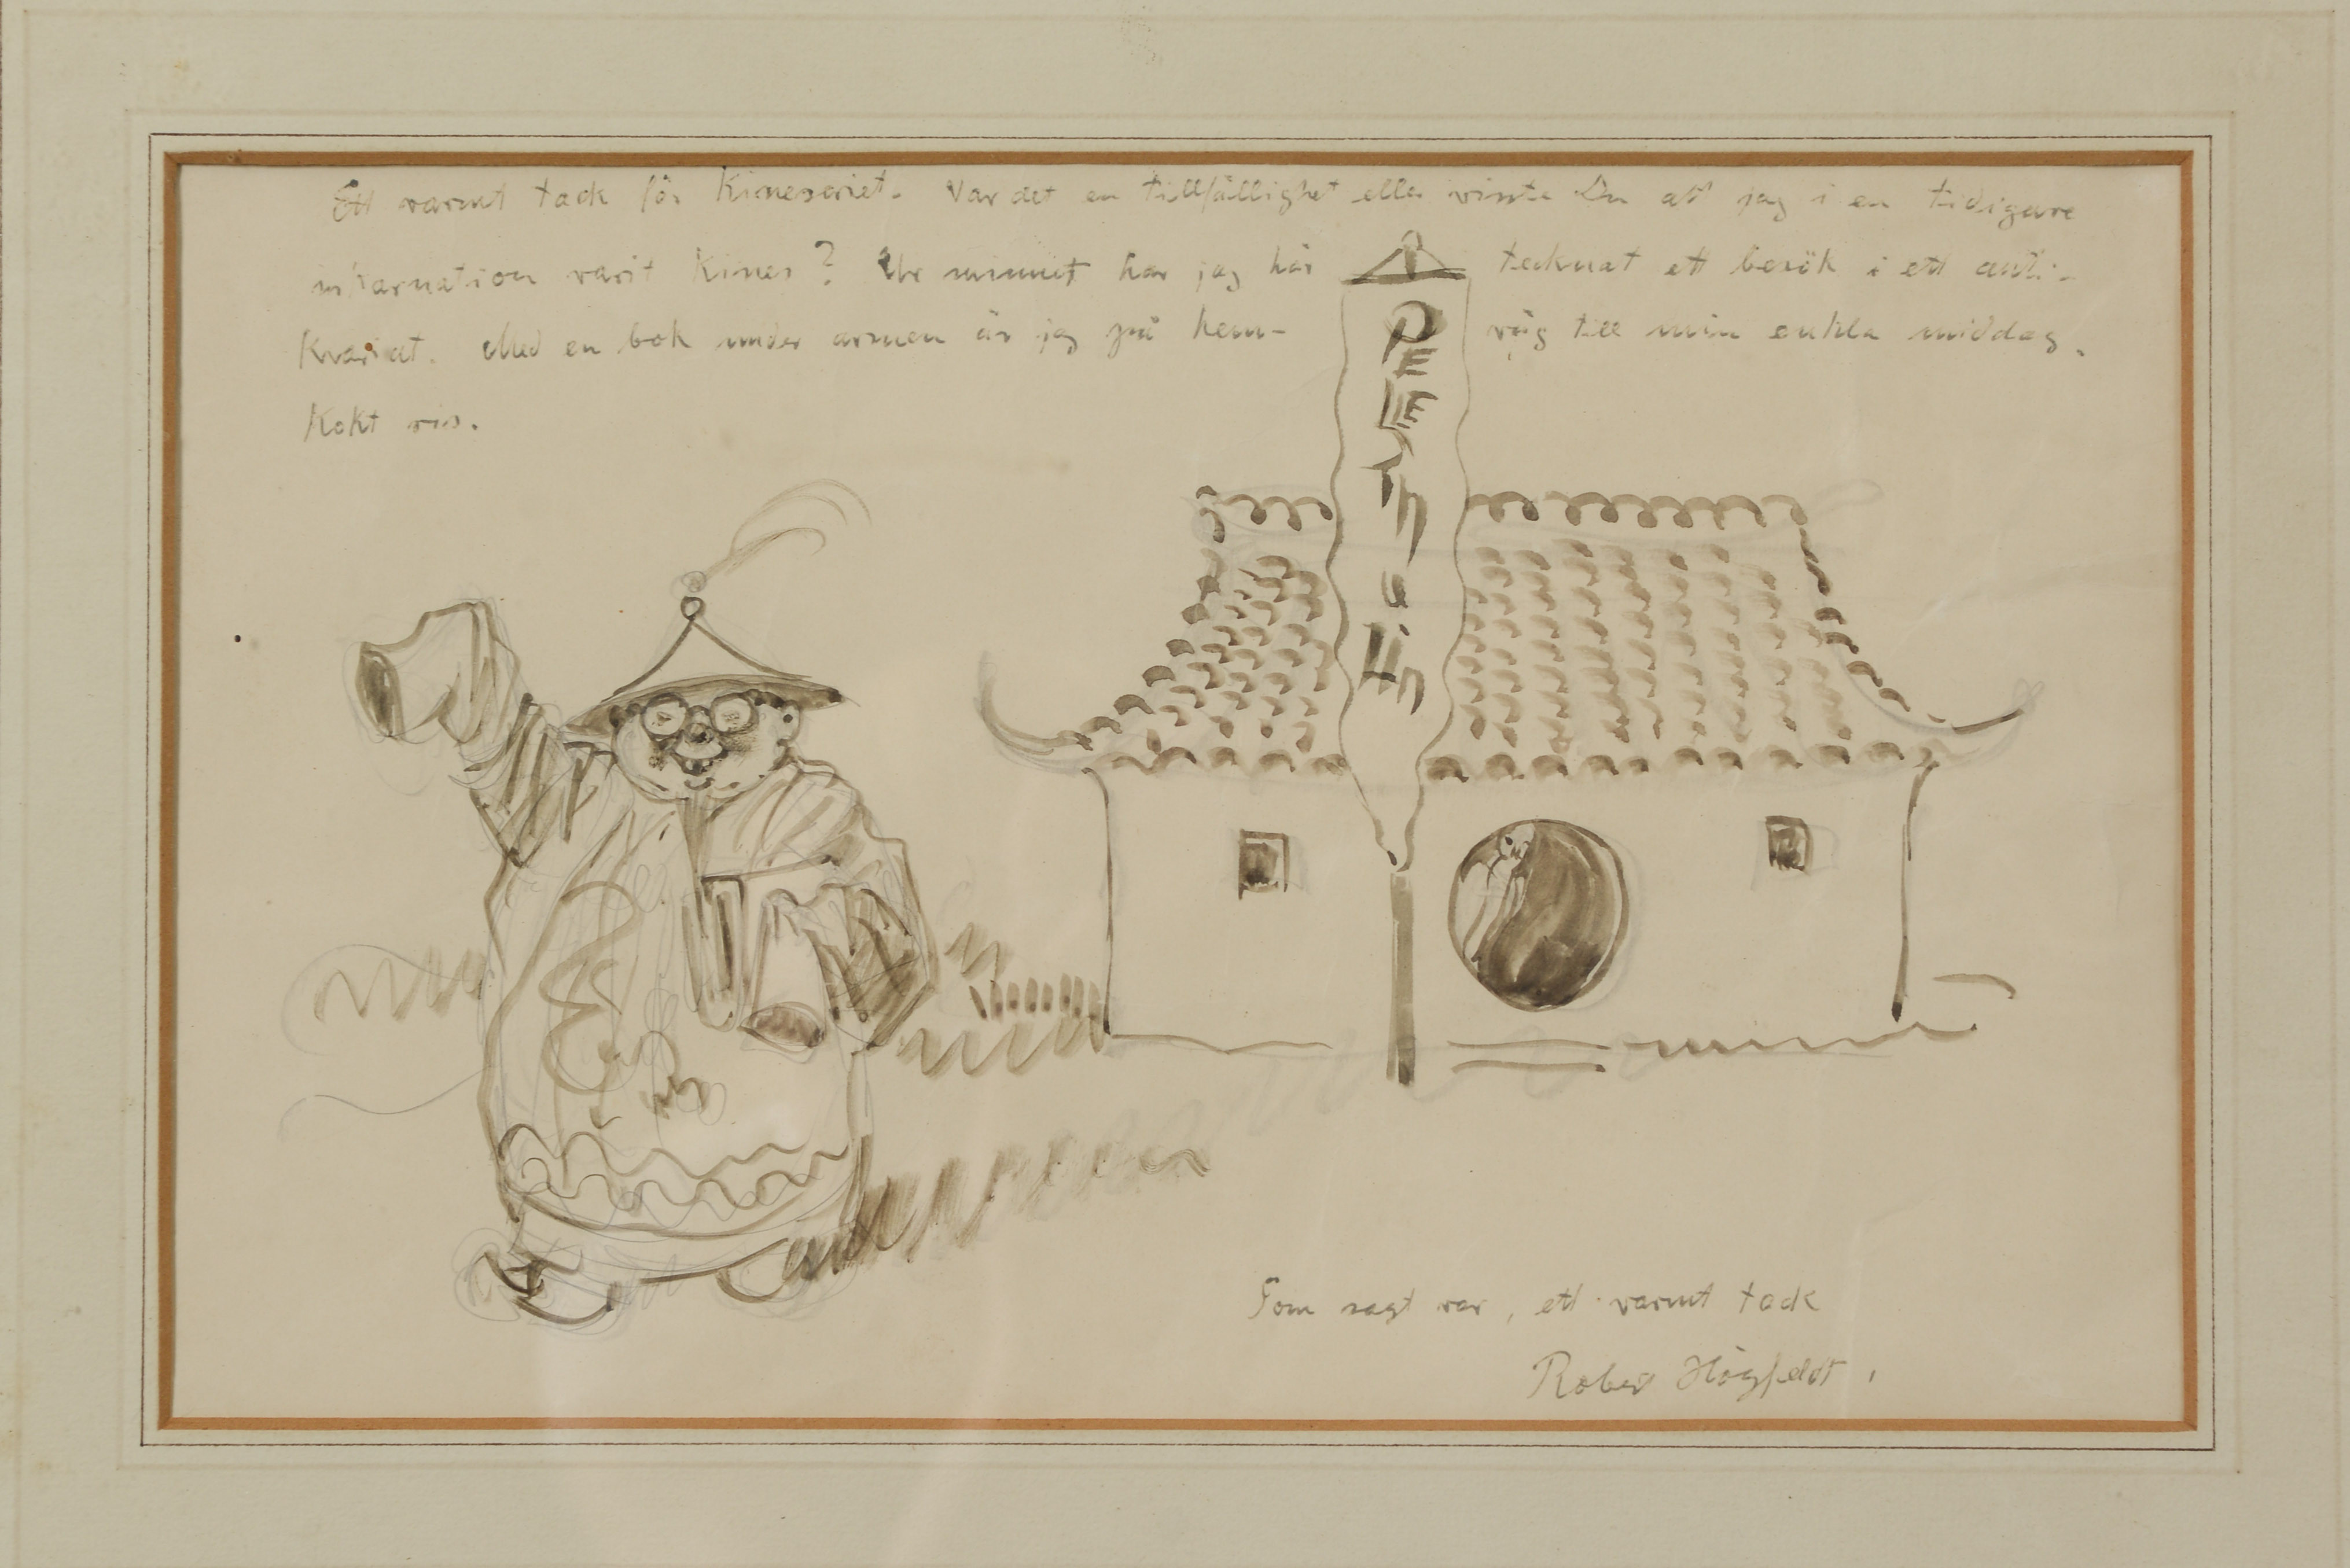 Ett varmt tack för Kineseriet. Var det en tillfällighet eller visste Du att jag i en tidigare
inkarnation varit Kines? Ur minnet har jag här tecknat ett besök i ett anti-
kvariat. Med en bok under armen är jag på hem- väg till min enkla middag.
Kokt ris.
Som sagt var, ett varmt tack
Robert Högfeldt.